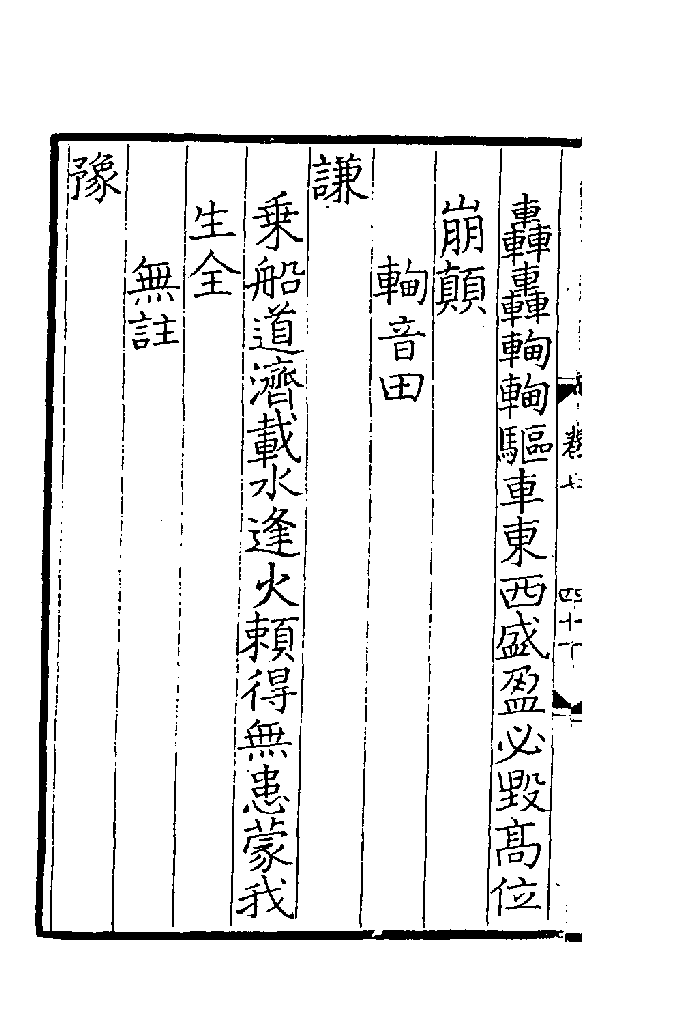 卷七
轟轟輷輷驅車東西盛盈必毀髙位
崩顛
輷音田
謙
乗船道濟載水逢火頼得無患蒙我
生全
無註
豫